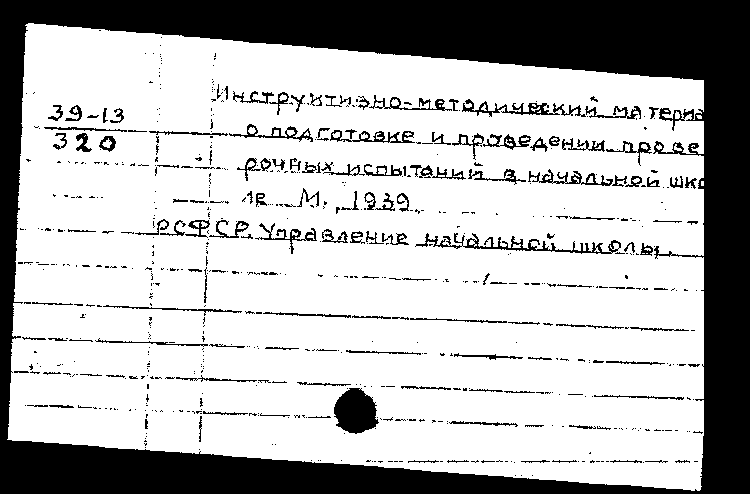 39-13
320
Инструктивно-методический материа
о подготовке и проведении прове
рочных испытаний в начальной шко
ле М., 1939.
РСФСР. Управление начальной школы.